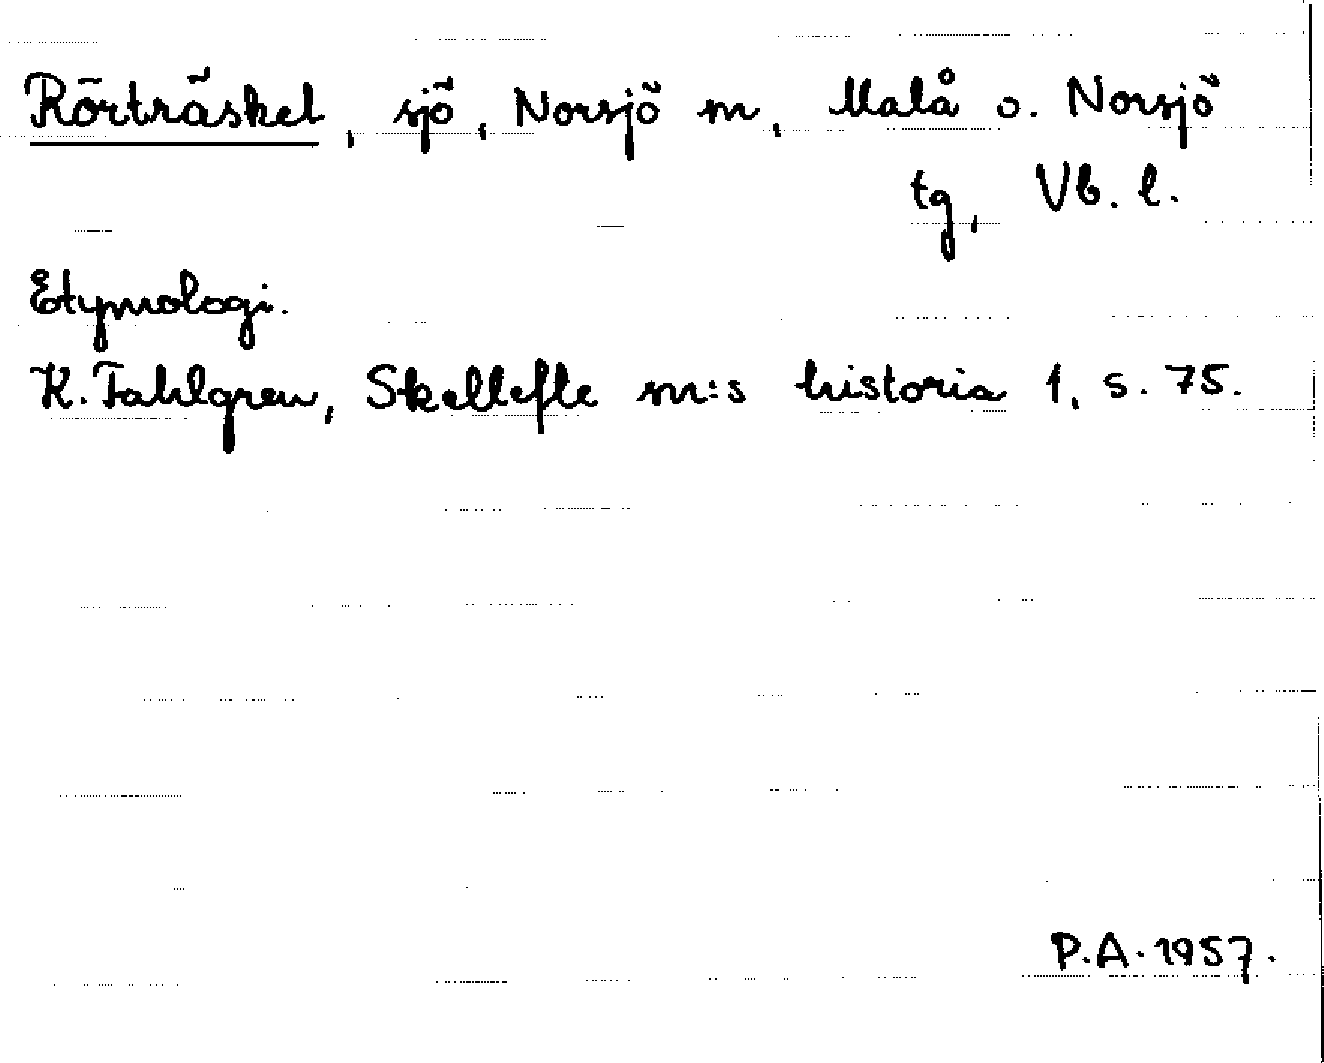 Rörträsket, sjö, Norsjö m, Malå o. Norsjö
tg, Vb. l.
Etymologi.
K. Fahlgren, Skellefte m:s historia 1, s. 75.
P.A. 1957.